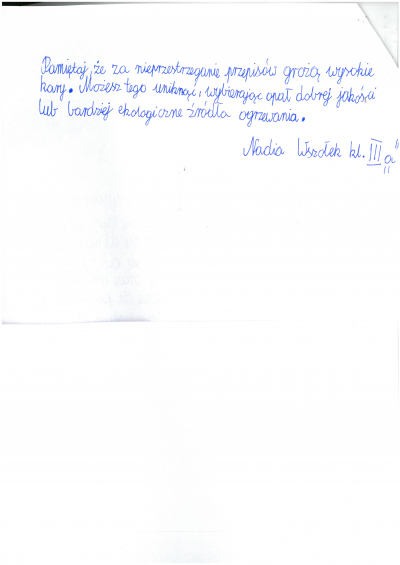 Pamiętaj, że za nieprzestrzeganie przepisów grożą wysokie
kary. Możesz tego uniknąć, wybierając opał dobrej jakości
lub bardziej ekologiczne źródła ogrzewania.
Nadia Wszołek kl. III "a"